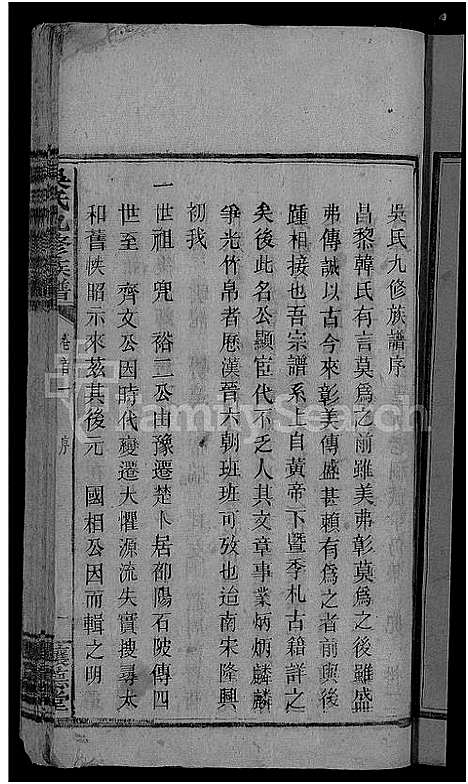 吳氏九修族譜序
昌黎韓氏有言莫為之前雖美弗彰莫為之後雖盛
弗傳誠以古今來彰美傳盛甚賴有為之者前與後
踵相接也吾宗譜系上自黃帝下暨季札古籍詳之
矣後此名公顯宦代不乏人其文章事業炳炳麟麟
爭光竹帛者歷漢晉六朝班班可攷也迨南宋隆興
初我
一世祖 兕 裕二公由豫遷楚卜居邵陽石陂傳四
世至 齊文公因時代變遷大懼源流失實搜尋太
和舊帙昭示來茲其後元 國相公因而輯之明
吳氏九修族譜
卷首一
序
一
讓德堂
FamilySearch